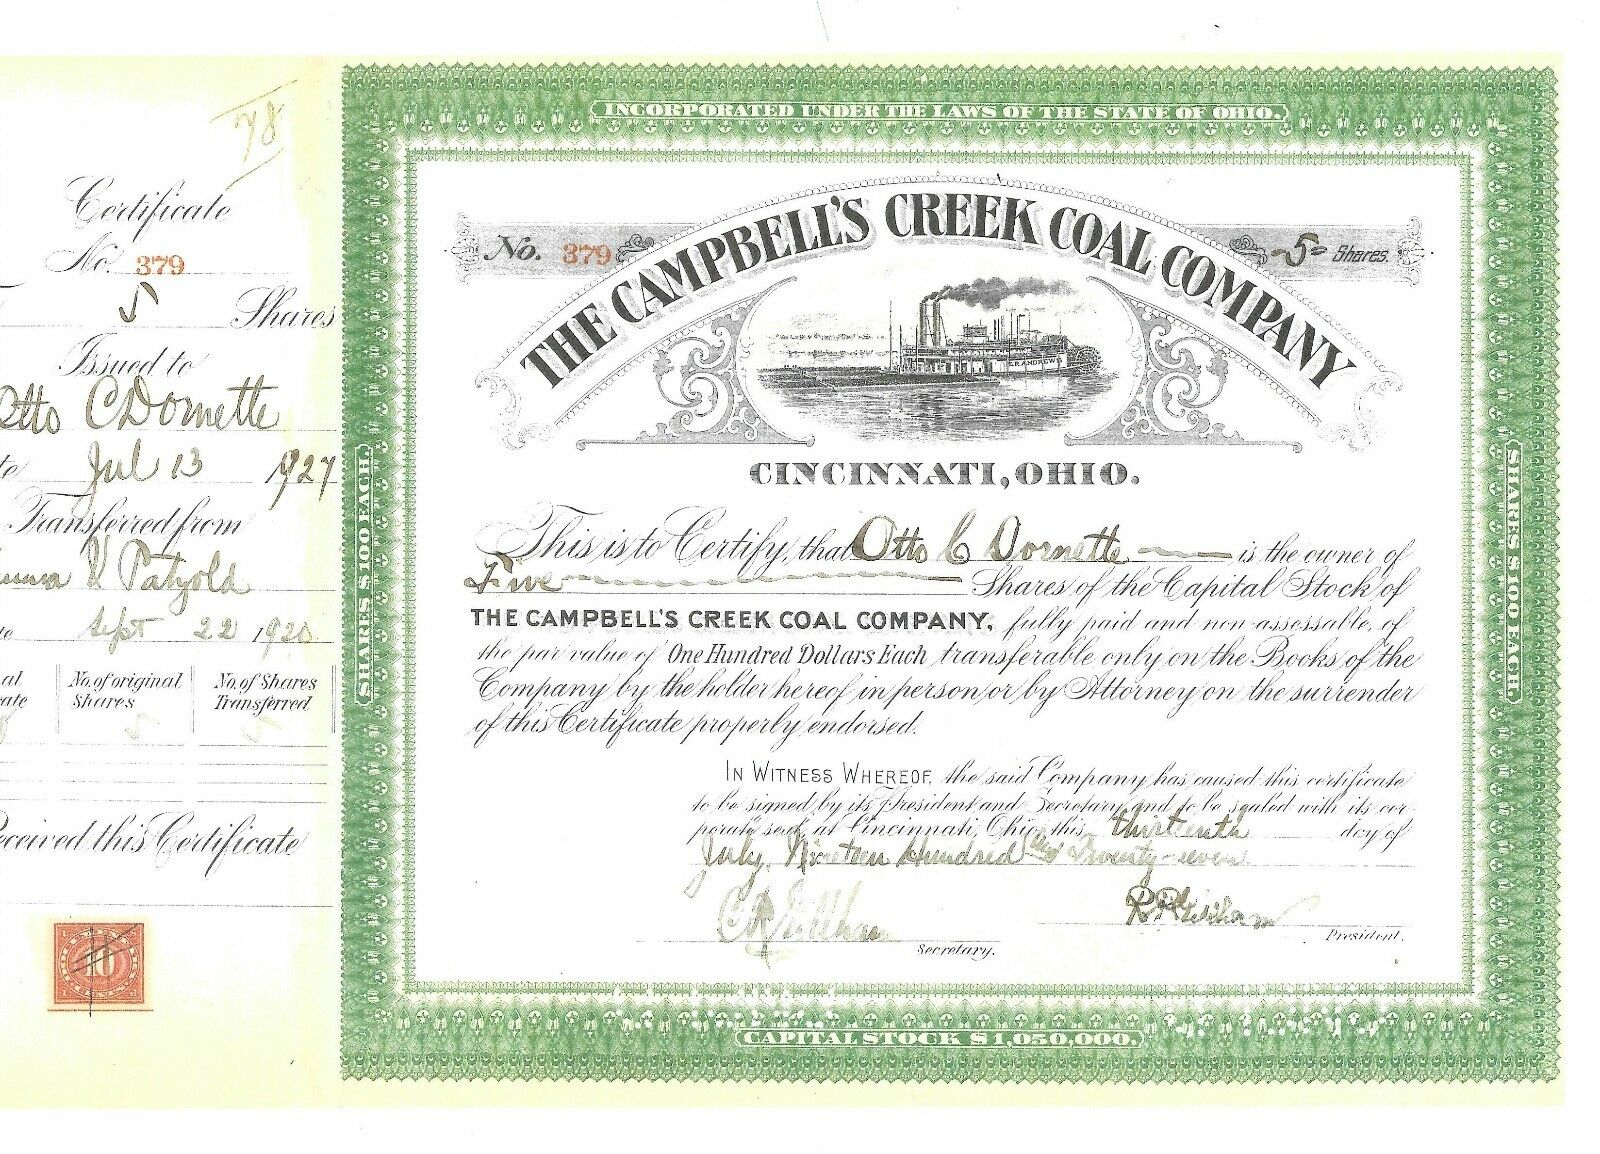 78
Certificate
No. 379
5 Shares
Issued to
Otto C Dornette
Jul 13 1927
Transferred from
Patzold
Sept 22 1920
No. of original Shares
No. of Shares Transferred
5
5
Received this Certificate
10
INCORPORATED UNDER THE LAWS OF THE STATE OF OHIO.
No. 379
THE CAMPBELL'S CREEK COAL COMPANY
5 Shares.
CINCINNATI, OHIO.
This is to Certify, that Otto C Dornette is the owner of
Five Shares of the Capital Stock of
THE CAMPBELL'S CREEK COAL COMPANY, fully paid and non-assessable, of
the par value of One Hundred Dollars Each transferable only on the Books of the
Company by the holder hereof in person or by Attorney on the surrender
of this Certificate properly endorsed.
IN WITNESS WHEREOF, the said Company has caused this certificate
to be signed by its President and Secretary and to be sealed with its cor-
porate seal at Cincinnati, Ohio this thirteenth day of
July, Nineteen Hundred and Twenty-seven
Secretary.
President.
SHARES $100 EACH.
SHARES $100 EACH.
CAPITAL STOCK $1,050,000.